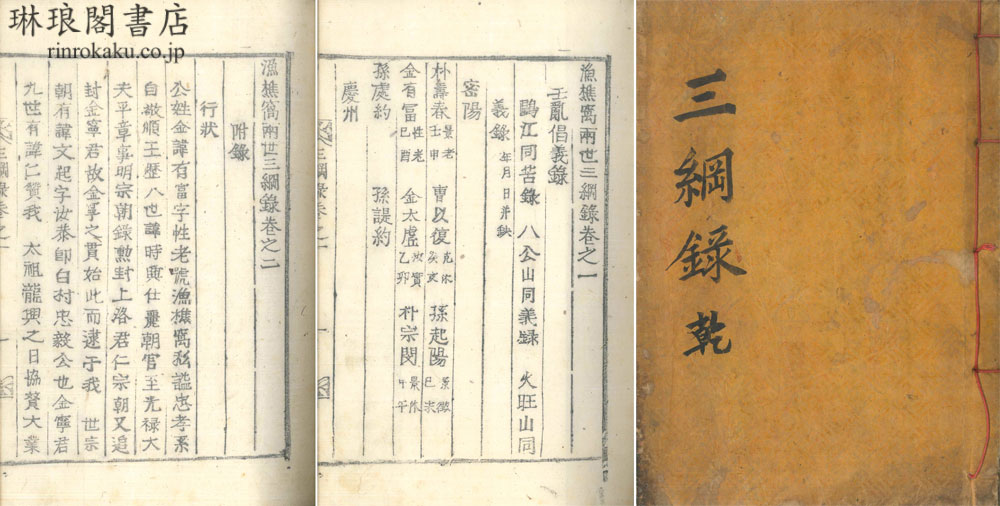 琳琅閣書店
rinrokaku.co.jp
三綱錄 乾
漁樵窩兩世三綱錄卷之一
壬亂倡義錄
鷗江同苦錄 八公山同義錄 火旺山同
義錄 年月日弟鉄
密陽
朴壽春 景老 壬申 曺以復 亥 孫起陽 景徵 己未
金有冨 性老 己酉 金太虛 汝寶 乙卯 朴宗閔
孫處約 孫諟約
慶州
漁樵窩兩世三綱錄卷之二
附錄
行狀
公姓金諱有富字性老號漁樵窩私謚忠孝系
自敬順王歷八世諱時興仕麗朝官至光禄大
夫平章事明宗朝錄勲封上洛君仁宗朝又追
封金寧君故金寧之貫始此而逮于我 世宗
朝有諱文起字汝恭卽白村忠毅公也金寧君
九世有諱仁賛我 太祖龍興之日協賛大業
三綱錄卷之一